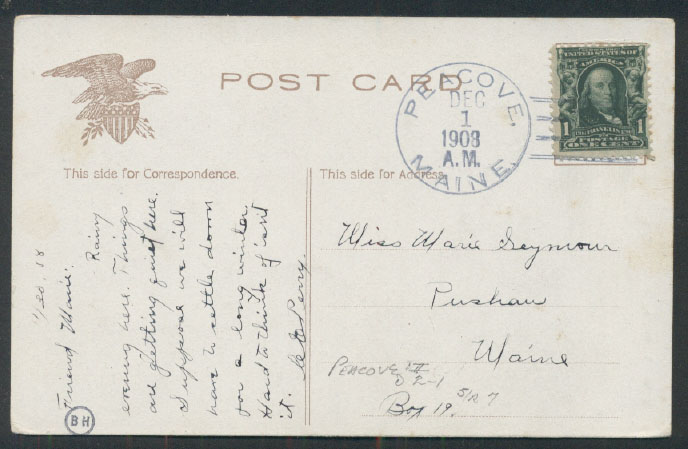 POST CARD
PEACOVE.
DEC
1
1908
A.M.
MAINE.
UNITED STATES OF
AMERICA
1 FRANKLIN 1
POSTAGE
ONE CENT
This side for Correspondence.
This side for Address.
Friend Marie.
Rainy
evening here. Things
are getting quiet here.
Suppose we will
have to settle down
for a long winter
Hard to think of isnt
it. Perry.
Miss Marie Seymour
Pushaw
Maine
Box 19.
PEACOVE III
D 2-1
S/R 7
BH